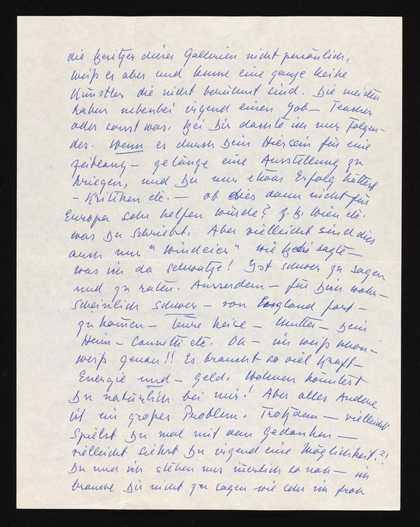 die Besitzer dieser Gallerien nicht persönlich,
weiß es aber und kenne eine ganze Reihe
Künstler die nicht berühmt sind. Die meisten
haben nebenbei irgend einen Job – Teacher
oder sonst was. Bei Dir dachte ich nur Folgen-
des. Wenn es durch Dein Hiersein für eine
Zeitlang – gelänge eine Ausstellung zu
kriegen, und Du nur etwas Erfolg hättest
– Kritiken etc. – ob dies dann nicht für
Europa sehr helfen würde? z.B. Wien etc.
was Du schriebst. Aber vielleicht sind dies
auch nur "Windeier" wie sagte –
was ich da schwatze! Ist schwer zu sagen
und zu raten. Ausserdem – für Dich wahr-
scheinlich schwer – von England fort-
zu kommen – teure Reise – Mutter – Dein
Heim – Canetti etc. Oh – ich weiß schon –
weiß genau!! Es braucht so viel Kraft –
Energie und – Geld. Wohnen könntest
Du natürlich bei mir! Aber alles Andere
ist ein großes Problem. Trotzdem – vielleicht
spielst Du mal mit dem Gedanken –
vielleicht siehst Du irgend eine Möglichkeit?!
Du und ich stehen uns innerlich so nah – ich
brauche Dir nicht zu sagen wie sehr ich froh